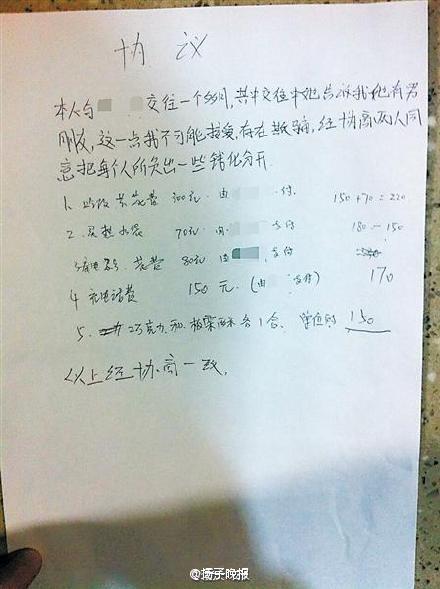 协 议
本人与 交往一个多月,其中交往中她告诉我她有男
朋友,这一点我不可能接受,存在欺骗,经协商两人同
意把每个人所负出一些钱化分开.
1. 花费 300元. 由 支付. 150+70=220
2. 买 70元 由 支付 180-150
花费 80元 由 支付
170
4 充电话费 150元.(由 支付)
5. 巧克力和 各1合. 150
以上经协商一致.
@扬子晚报